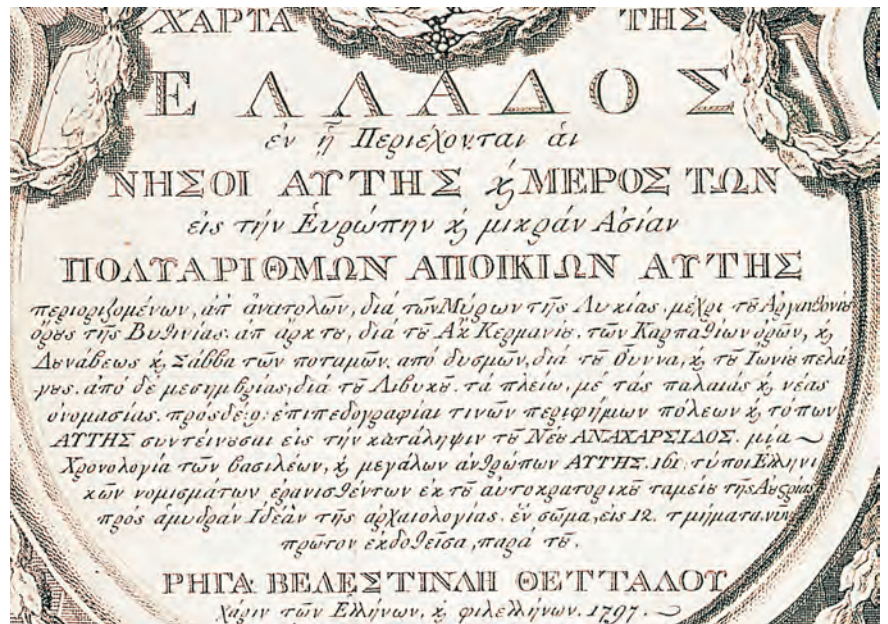 ΧΑΡΤΑ ΤΗΣ
ΕΛΛΑΔΟΣ
ἐν ᾗ Περιέχονται ἁι
ΝΗΣΟΙ ΑΥΤΗΣ ϗ ΜΕΡΟΣ ΤΩΝ
ἐις τήν Ἐυρώπην ϗ μικράν Ἀσίαν
ΠΟΛΥΑΡΙΘΜΩΝ ΑΠΟΙΚΙΩΝ ΑΥΤΗΣ
περιοριζομένων, ἀπ ἀνατολῶν, διά τῶν Μύρων τῆς Λυκίας. μέχρι τȣ Ἀργανθονίȣ
ὄρȣς τῆς Βυθινίας. ἀπ ἄρκτȣ, διά τȣ Ἀκ Κερμανίȣ. τῶν Καρπαθίων ὀρῶν, ϗ
Δȣνάβεως ϗ Σάββα τῶν ποταμῶν. ἀπό δυσμῶν, διά τȣ Ȣννα, ϗ τȣ Ἰωνίȣ πελά
γȣς. ἀπό δέ μεσημβρίας, διά τȣ Λιβυκȣ. τά πλείω, μέ τάς παλαιάς ϗ νέας
ὀνομασίας. πρόσδε: 9: ἐπιπεδογραφίαι τινῶν περιφήμων πόλεων ϗ τόπων
ΑΥΤΗΣ συντείνȣσαι εἰς τήν κατάληψιν τȣ Νέȣ ΑΝΑΧΑΡΣΙΔΟΣ. μία ~
Χρονολογία τῶν βασιλέων, ϗ μεγάλων ἀνθρώπων ΑΥΤΗΣ. 161 τύποι Ἑλληνι
κῶν νομισμάτων ἐρανισθέντων ἐκ τȣ ἀυτοκρατορικȣ ταμείȣ τῆς Αὐϛρίας
πρός ἀμυδράν Ἰδέαν τῆς ἀρχαιολογίας. ἕν σῶμα, εἰς 12. τμήματα. νῦν
πρῶτον ἐκδοθεῖσα, παρά τȣ.
ΡΗΓΑ ΒΕΛΕΣΤΙΝΛΗ ΘΕΤΤΑΛΟΥ
Χάριν τῶν Ἑλλήνων, ϗ φιλελλήνων. 1797. ~